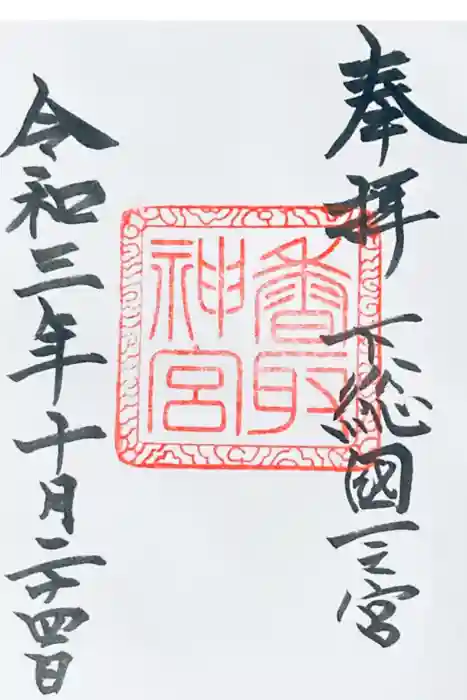 奉拝 下総國一之宮
香取
神宮
令和三年十月二十四日